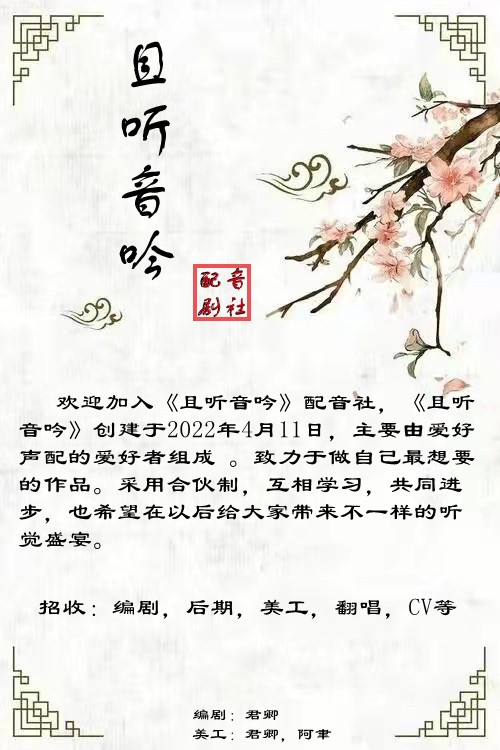 且听音吟
配音
剧社
欢迎加入《且听音吟》配音社，《且听
音吟》创建于2022年4月11日，主要由爱好
声配的爱好者组成 。致力于做自己最想要
的作品。采用合伙制，互相学习，共同进
步，也希望在以后给大家带来不一样的听
觉盛宴。
招收：编剧，后期，美工，翻唱，CV等
编剧：君卿
美工：君卿，阿聿